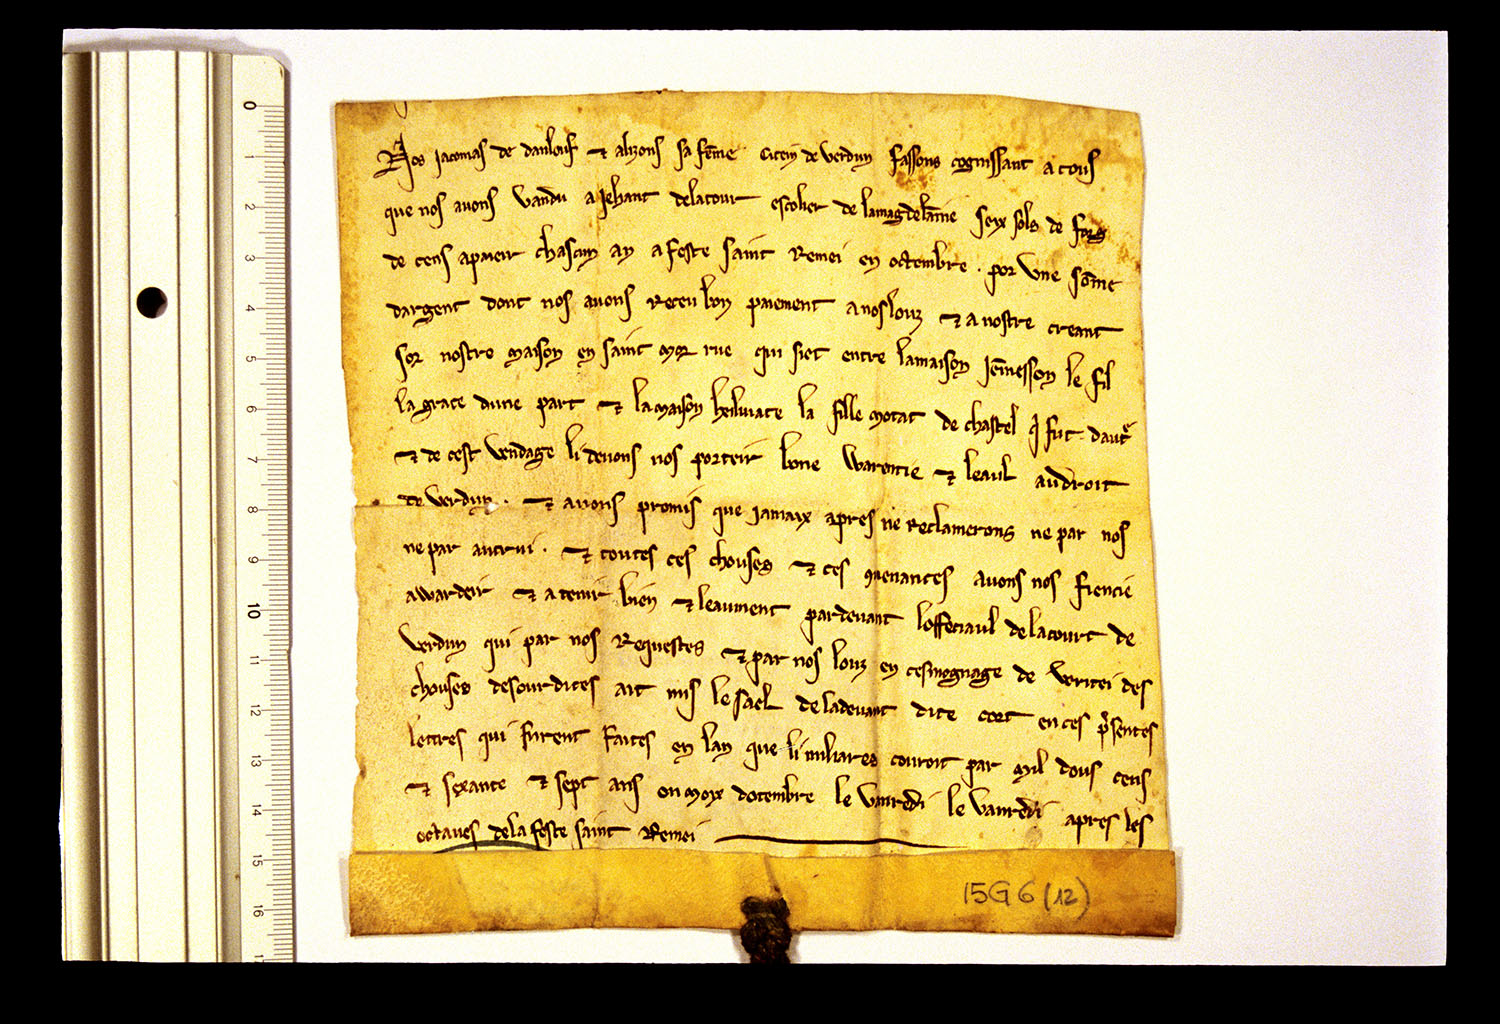 Nos jacomas de danlouf & alizons sa fēme citein de verdun fassons cognissant a tous
que nos avons vandu a Jehant delatour escolier de lamagdelāine seix sols de fors
de cens apaieir chascun an a feste saint Remei en octembre . por une sōme
dargent dont nos avons Receu bon paiement a nos louz & a nostre creant
sor nostre maison en saint mor rue qui siet entre lamaison Jēnesson le fil
la grace dune part & lamaison heiluiate la fille motat de chastel q̄ fut dautr̄
& de cest vendage li devons nos porteir bone warentie & leaul audroit
de verdun . & avons promis que jamaix apres ne Reclamerons ne par nos
ne par autrui . & toutes ces chouses & ces 9venances avons nos fiencié
awardeir & a tenir bien & leaument pardevant loffeciaul de lacourt de
verdun qui par nos Requestes & par nos louz en tesmognage de veritei des
chouses desourdites ait mis le sael de ladevant dite cort en ces p̄sentes
lettres qui furent faites en lan que li miliares couroit par mil dous cens
& sexante & sept ans on moix dotembre le vanredi le vanredi apres les
octaves de la feste saint Remei
15G6 (12)
0
1
2
3
4
5
6
7
8
9
10
11
12
13
14
15
16